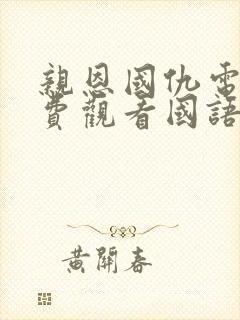 親恩國仇電
費觀看國語
黃開春